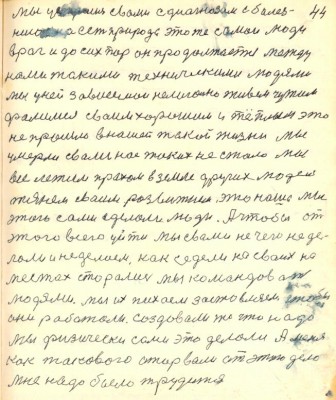 44
мы с вами с диагнозом с болез-
нию на ест природе это те самои люди
враги до сих пор он продолжается между
нами такими техническими людями
мы у ней зависемои нелигално живем чужим
своим хорошим и тёплым это
не прошло в нашей такой жизни мы
умерли с вами нас таких не стало мы
все летим прахом в земле других людей
тянем своим розвитием это наше мы
этого сами сделали люди. А чтобы от
этого всего уйти мы с вами не чего не де-
лали и неделаем, как седели на своих на
местах старалис мы командоват
людями, мы их пихаем заставляем чтобы
они работали. создовали же что надо
мы физически сами это делали А меня
как такового оторвали от этого дело
мне надо было трудится